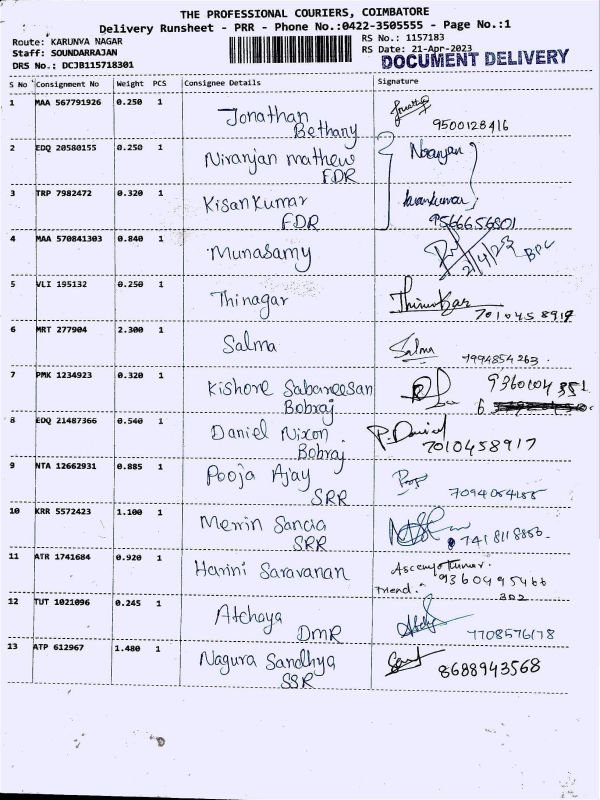 THE PROFESSIONAL COURIERS, COIMBATORE
Delivery Runsheet - PRR - Phone No.:0422-3505555 - Page No.:1
Route: KARUNYA NAGAR
RS No.: 1157183
Staff: SOUNDARRAJAN
RS Date: 21-Apr-2023
DRS No.: DCJB115718301
DOCUMENT DELIVERY
S No Consignment No Weight PCS Consignee Details Signature
1 MAA 567791926 0.250 1 Jonathan
Bethany 9500128416
2 EDQ 20580155 0.250 1 Niranjan mathew Niranjan
FDR
3 TRP 7982472 0.320 1 Kisan Kumar
FDR 9566656801
4 MAA 570841303 0.840 1 Munasamy 21/4/23
5 VLI 195132 0.250 1 Thinagar
7010458917
6 MRT 277904 2.300 1 Salma Salma 7994854263.
7 PMK 1234923 0.320 1 Kishore Sabareesan 9360104351
Bobraj
8 EDQ 21487366 0.540 1 Daniel Nixon P. Daniel
Bobraj 7010458917
9 NTA 12662931 0.885 1 Pooja Ajay
SRR
10 KRR 5572423 1.100 1 Merrin Sancia
SRR 7418118856.
11 ATR 1741684 0.920 1 Harini Saravanan
9360495466
12 TUT 1021096 0.245 1 Atchaya
DMR 7708576178
13 ATP 612967 1.480 1 Nagura Sandhya
SSR 8688943568